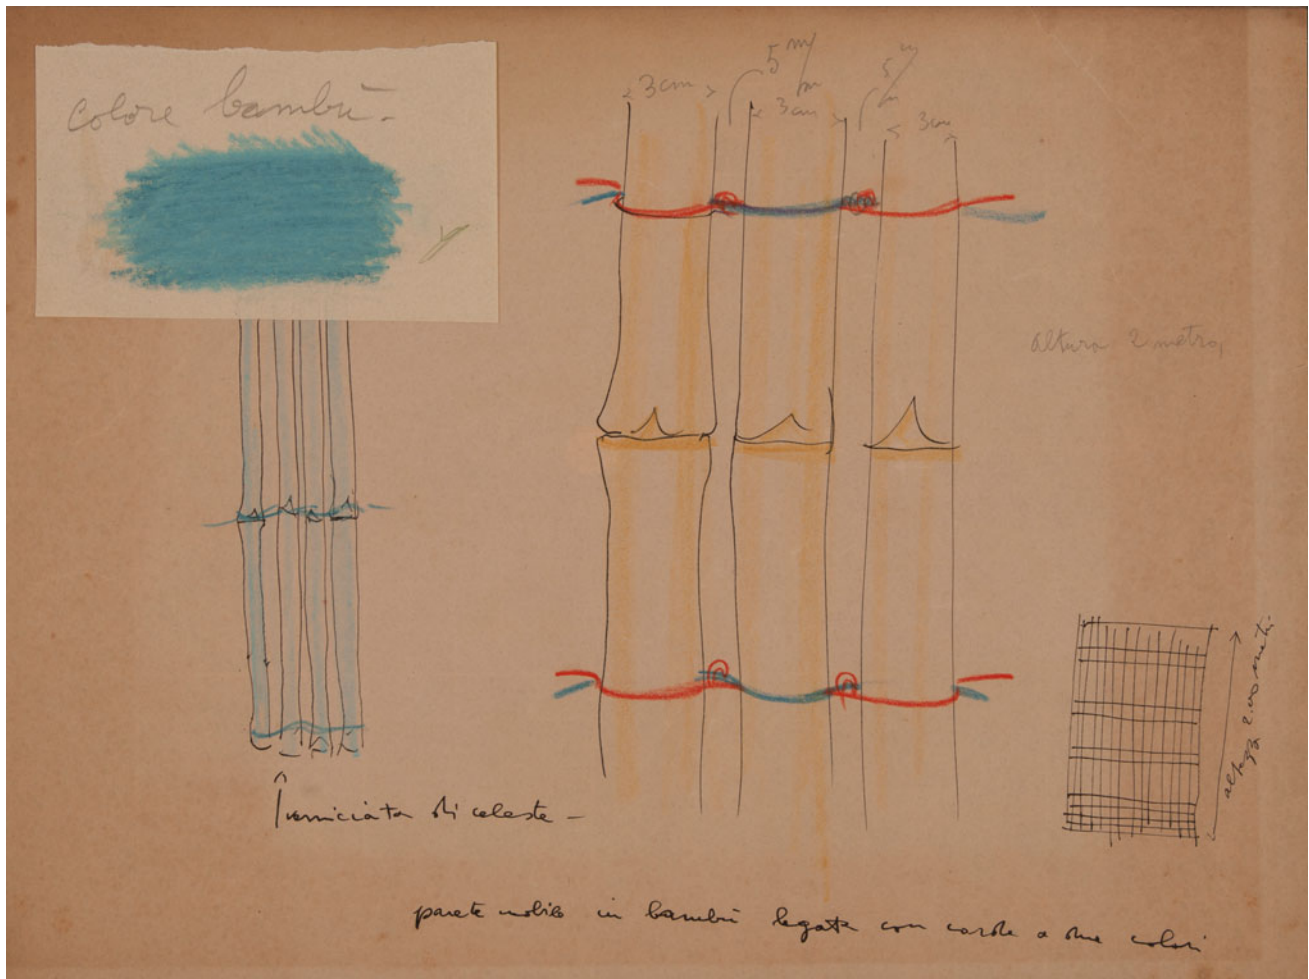 colore bambù -
3 cm
5 m/m
3 cm
5 m/m
3 cm
altura 2 metro,
altezza 2.00 metri
verniciata di celeste -
parete mobile in bambù legata con corde a due colori